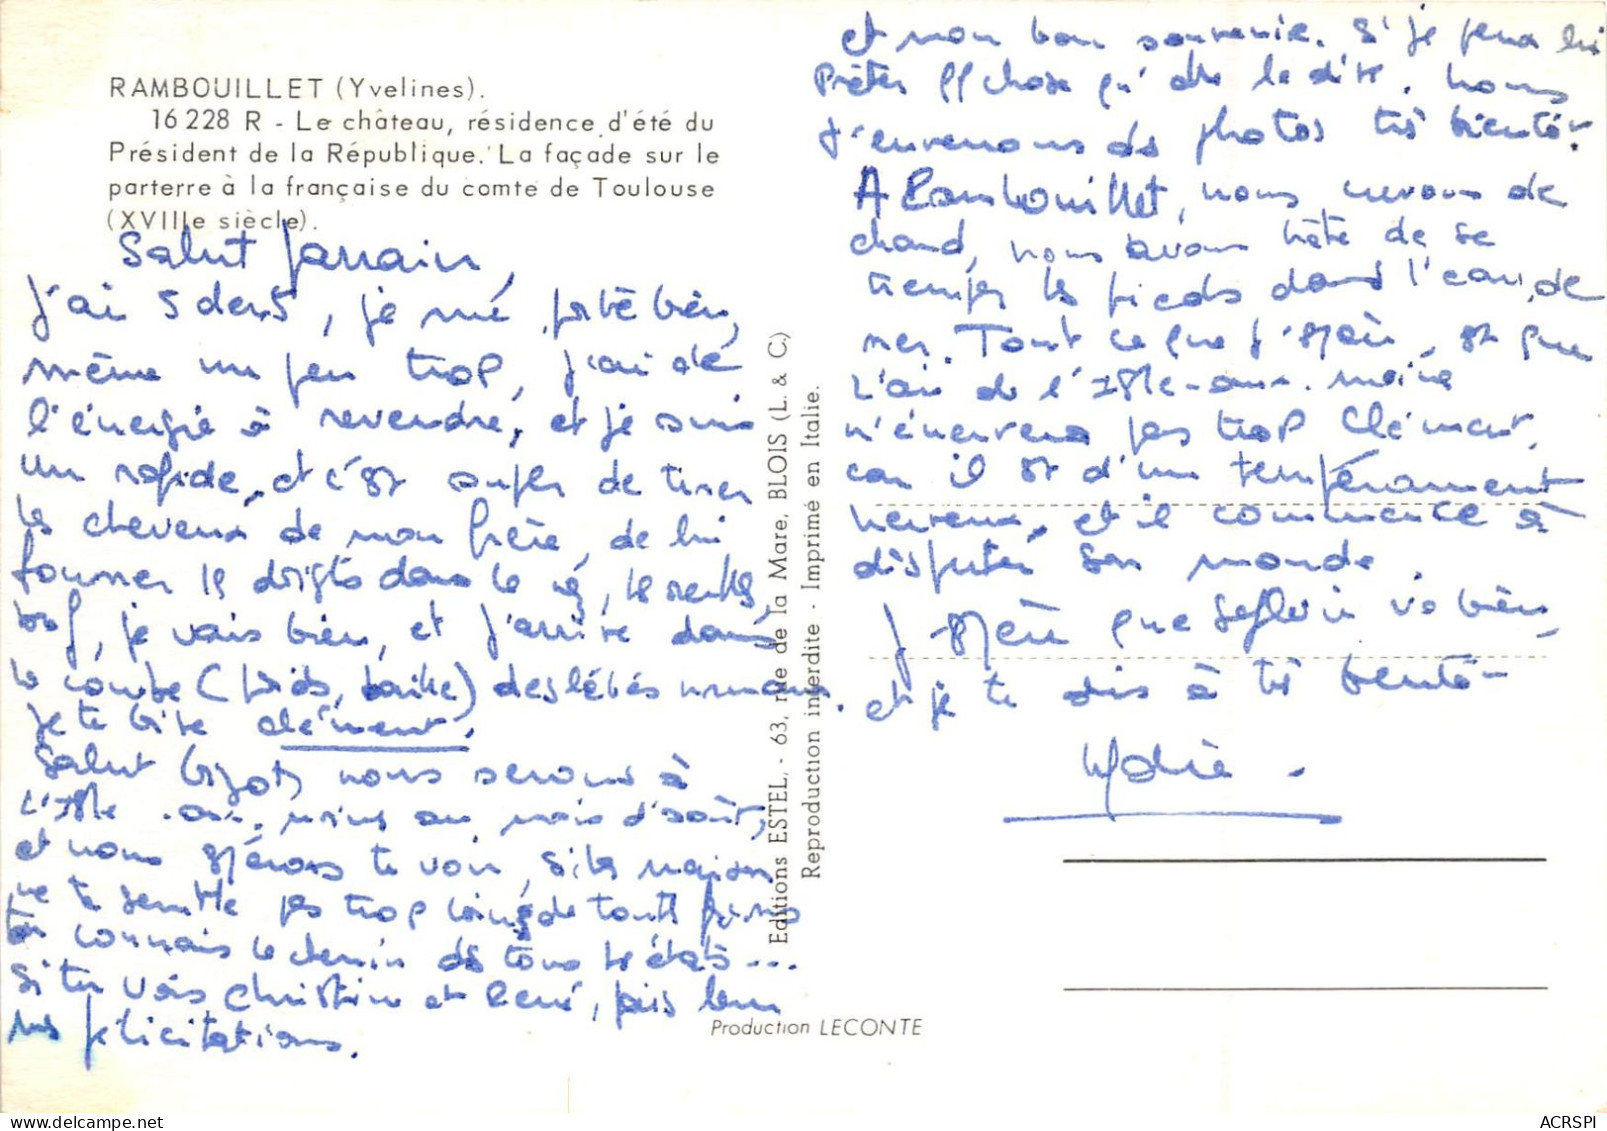 RAMBOUILLET (Yvelines).
16 228 R - Le château, résidence d'été du
Président de la République. La façade sur le
parterre à la française du comte de Toulouse
(XVIIIe siècle).
Salut Parrain,
J'ai 5 dents, je me porte bien,
même un peu trop, j'ai de
l'énergie à revendre, et je suis
un rapide, et c'est super de tirer
les cheveux de mon frère, de lui
fourrer les doigts dans le nez, les oreilles,
bref, je vais bien, et j'arrive dans
la courbe (poids, taille) des bébés normaux.
Je te bise Clément.
Salut nous serons à
L'Isle-aux-moines au mois d'août,
et nous espérons te voir, si la maison
ne te semble pas trop loin de tout
Tu connais le chemin de tous les états...
Si tu vois Christine et René, fais leur
mes félicitations.
et mon bon souvenir. Si je peux lui
prêter qqchose qu'elle le dise. Nous
t'enverrons des photos très bientôt.
A Rambouillet, nous crevons de
chaud, nous avons hâte de se
tremper les pieds dans l'eau de
mer. Tout ce que j'espère, est que
l'air de l'Isle-aux-moines
n'énervera pas trop Clément,
car il est d'un tempérament
nerveux, et il commence à
disputer son monde.
J'espère que va bien,
et je te dis à très bientôt
Lydie.
Editions ESTEL, - 63, rue de la Mare, BLOIS (L. & C.)
Reproduction interdite - Imprimé en Italie.
Production LECONTE
ACRSPI